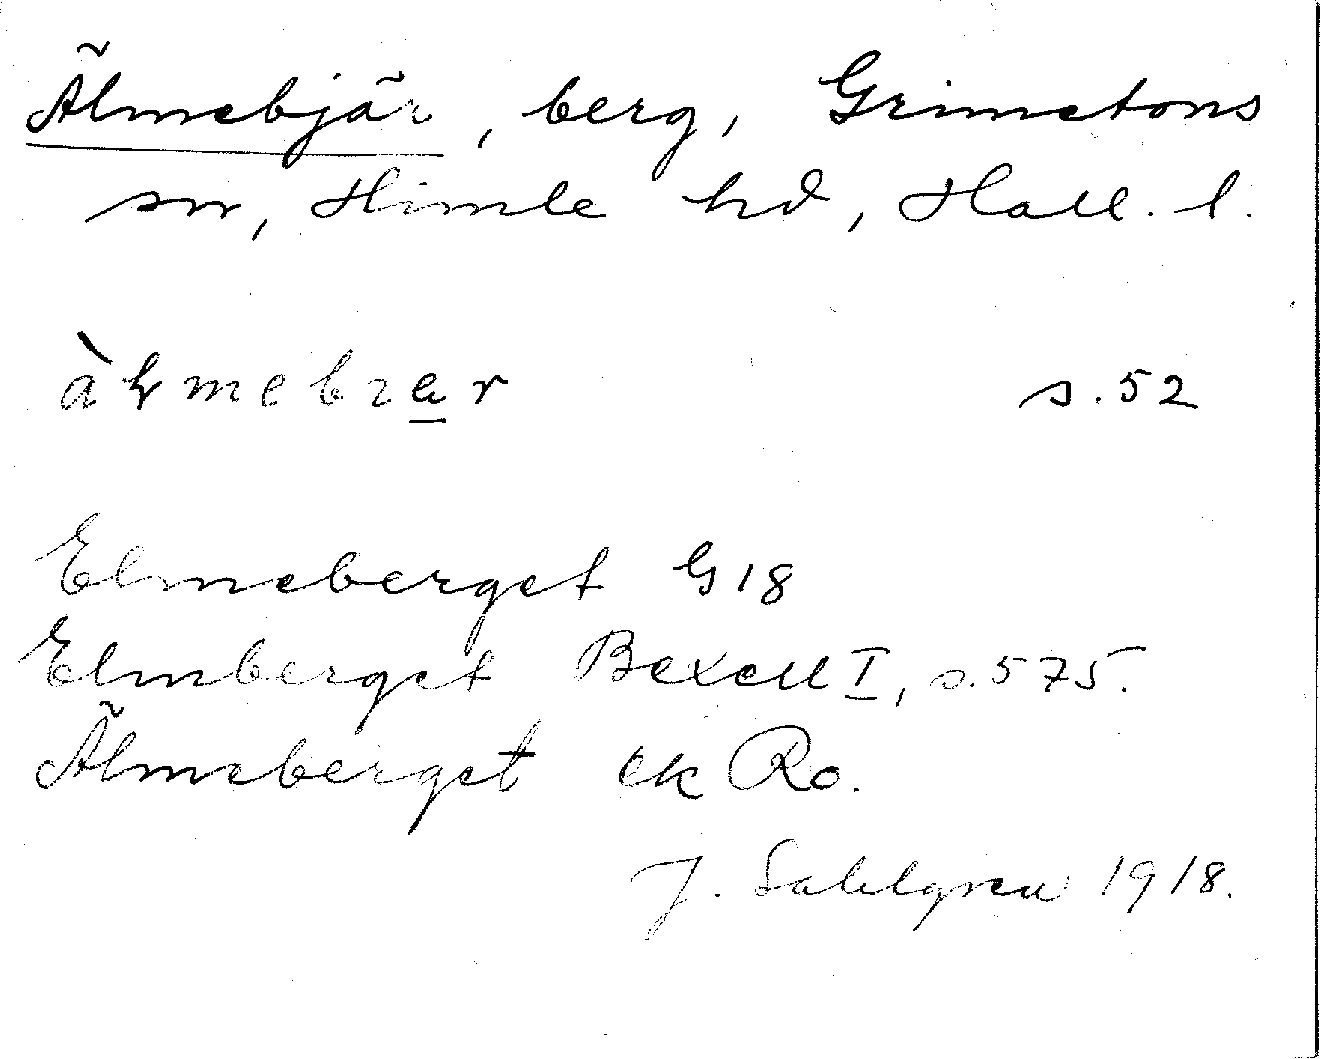 Älmebjär, berg, Grimetons
sn, Himle hd, Hall. l.
s. 52
Elmeberget G 18
Elmberget Bexell I, s. 575.
Älmeberget ek Ro.
J. Sahlgren 1918.